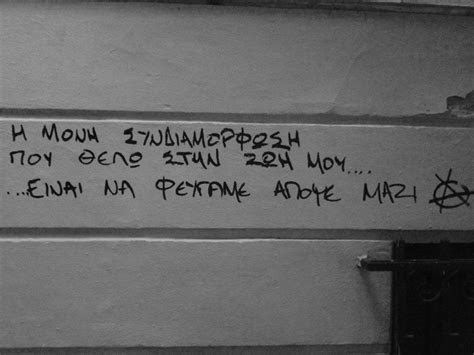 Η ΜΟΝΗ ΣΥΝΔΙΑΜΟΡΦΩΣΗ
ΠΟΥ ΘΕΛΩ ΣΤΗΝ ΖΩΗ ΜΟΥ....
...ΕΙΝΑΙ ΝΑ ΦΕΥΓΑΜΕ ΑΠΟΨΕ ΜΑΖΙ